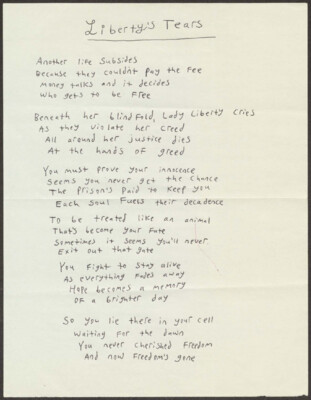 Liberty's Tears
Another life Subsides
Because they couldn't pay the Fee
Money talks and it decides
Who gets to be Free
Beneath her blindfold, Lady Liberty Cries
As they violate her Creed
All around her justice dies
At the hands of greed
You must prove your innocence
Seems you never get the Chance
The Prison's Paid to Keep you
Each Soul Fuels their decadence
To be treated like an animal
That's become your Fate
Sometimes it Seems you'll never
Exit out that gate
You Fight to Stay alive
As everything Fades away
Hope becomes a memory
Of a brighter day
So you lie there in your Cell
Waiting For the dawn
You never Cherished Freedom
And now Freedom's gone